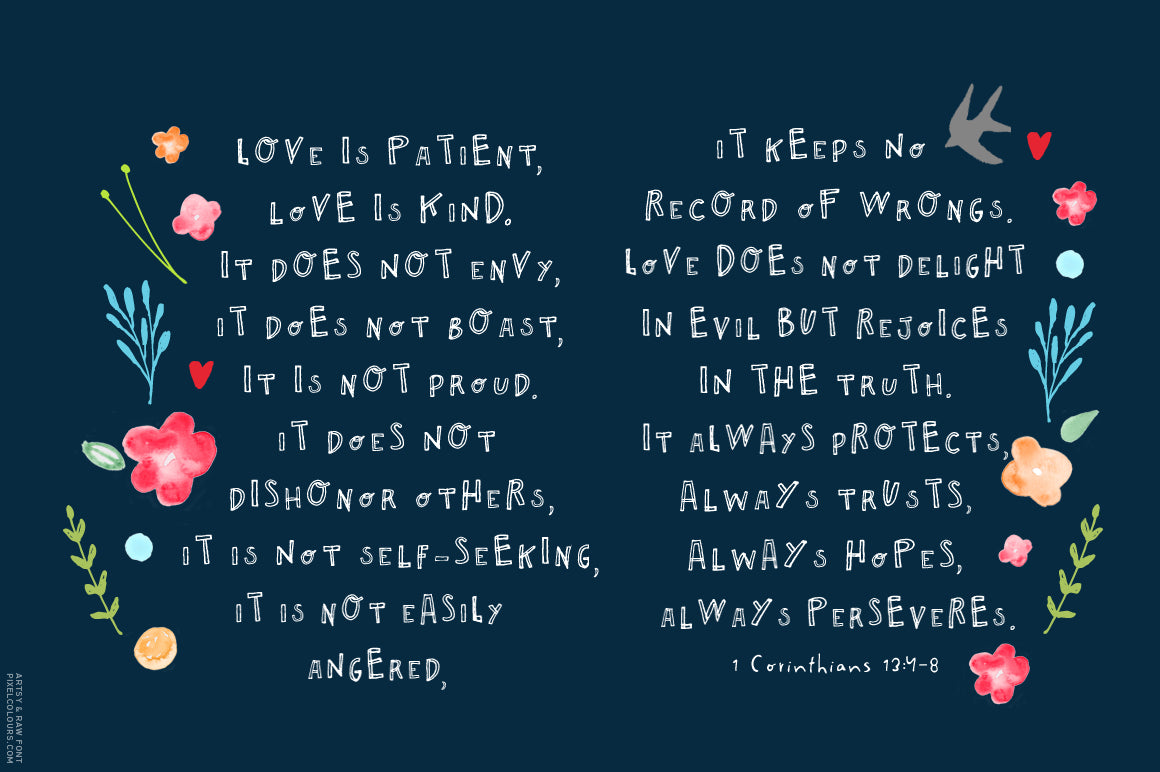 LOVE IS PATIENT,
LOVE IS KIND.
IT DOES NOT ENVY,
IT DOES NOT BOAST,
IT IS NOT PROUD.
IT DOES NOT
DISHONOR OTHERS,
IT IS NOT SELF-SEEKING,
IT IS NOT EASILY
ANGERED,
IT KEEPS NO
RECORD OF WRONGS.
LOVE DOES NOT DELIGHT
IN EVIL BUT REJOICES
IN THE TRUTH.
IT ALWAYS PROTECTS,
ALWAYS TRUSTS,
ALWAYS HOPES,
ALWAYS PERSEVERES.
1 Corinthians 13:4-8
ARTSY & RAW FONT
PIXELCOLOURS.COM